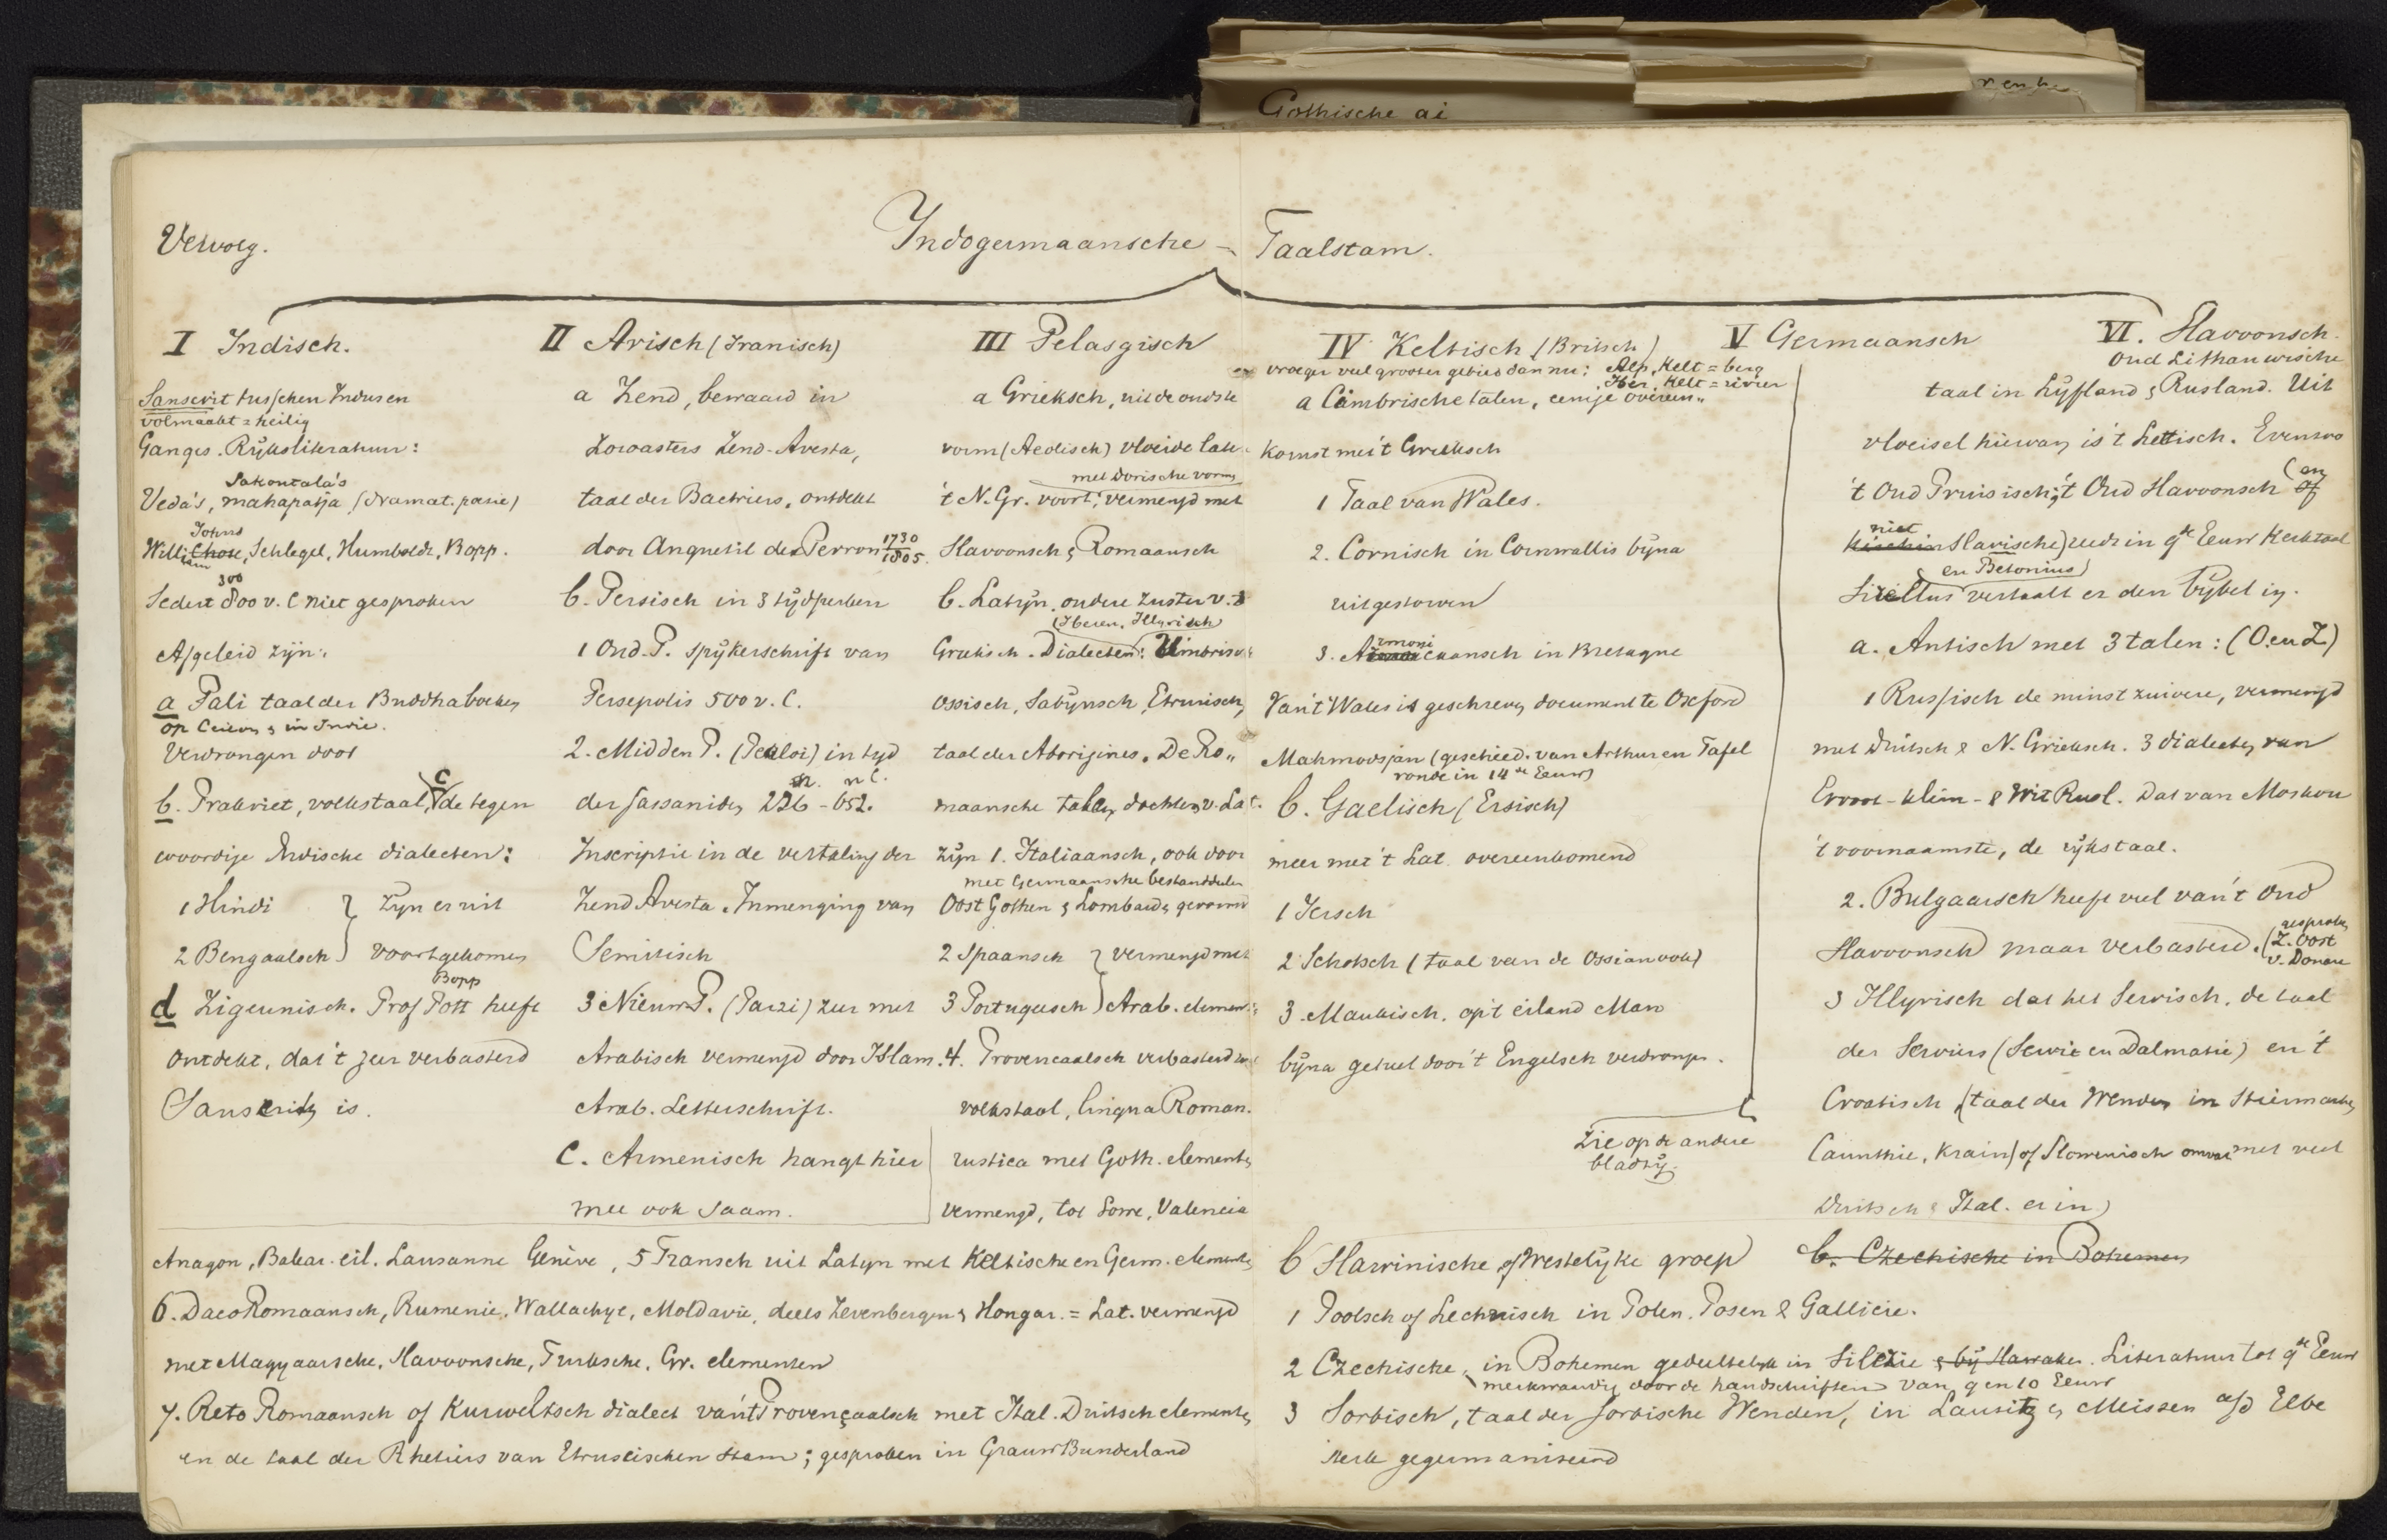 Gothische ai
Vervolg.
Indogermaansche - Taalstam.
I Indisch.
Sanscrit tusschen Indus en
volmaakt = heilig
Ganges. Rijke literatuur:
Sakontala's
Veda's, mahapatja (dramat. poesie)
Johns
William Chose, Schlegel, Humboldt, Bopp.
300
Sedert 800 v. C niet gesproken
Afgeleid zijn:
a Pali taal der Buddhaboeken
op Ceilon & in Indie.
Verdrongen door
b. Prakriet, volkstaal, c de tegen
woordige Indische dialecten:
1 Hindi } zijn er uit
2 Bengaalsch } voortgekomen
Bopp
d Zigeunisch. Prof Pott heeft
ontdekt, dat 't zeer verbasterd
Sanskrit is.
II Arisch (Iranisch)
a Zend, bewaard in
Zoroasters Zend-Avesta,
taal der Bactriers, ontdekt
door Anquetil du Perron 1730 1805.
b. Persisch in 3 tijdperken
1 Oud. P. spijkerschrift van
Persepolis 500 v. C.
2. Midden P. (Pehlvi) in tijd
n. C.
der Sassaniden 226 - 652.
Inscriptie in de vertaling der
Zend Avesta. Inmenging van
Semitisch
3 Nieuw P. (Parzi) zeer met
Arabisch vermengd door Islam.
Arab. Letterschrift.
C. Armenisch hangt hier
mee ook saam.
III Pelasgisch
a Grieksch, uit de oudste
vorm (Aeolisch) vloeide later
met Dorische vorm
't N. Gr. voort, vermengd met
Slavoonsch & Romaansch
b. Latijn, oudere zuster v. 't
(Iberen. Illyrisch)
Grieksch. Dialecten: Umbrisch
Ossisch, Sabijnsch, Etrurisch,
taal der Aborigines. De Ro„
maansche talen, dochters v. Lat.
zijn 1. Italiaansch, ook door
met Germaansche bestanddeelen
Oost Gothen & Lombarden gevormd
2 Spaansch } vermengd met
3 Portugeesch } Arab. element:
4. Provencaalsch verbasterd
volkstaal, lingua Roman.
rustica met Goth. elementen
vermengd, tot Lorre, Valencia
Aragon, Balear. eil. Lausanne Genève, 5 Fransch uit Latijn met Keltische en Germ. elementen
6. DacoRomaansch, Rumenie, Wallachye, Moldavie, deels Zevenbergen & Hongar. = Lat. vermengd
met Magyaarsche, Slavoonsche, Turksche, Gr. elementen
7. Reto Romaansch of Kurweltsch dialect van 't Provençaalsch met Ital. Duitsch elementen
en de taal der Rhetiers van Etruscischen stam; gesproken in GrauwBunderland
IV Keltisch (Britsch)
vroeger veel grooter gebied dan nu: Alp, Kelt = berg
Iber, Kelt = rivier
a Cimbrische talen, eenige overeen„
komst met 't Grieksch
1 Taal van Wales.
2. Cornisch in Cornwallis bijna
uitgestorven
3. Armoricaansch in Bretagne
Van 't Wales is geschreven document te Oxford
(geschied. van Arthur en Tafel
ronde in 14de Eeuw)
b. Gaelisch (Ersisch)
meer met 't Lat overeenkomend
1 Iersch
2 Schotsch (taal van de Ossian ook)
3. Mankisch. op 't eiland Man
bijna geheel door 't Engelsch verdrongen.
V Germaansch
Zie op de andere
bladzij.
VI. Slavoonsch.
Oud Lithauwische
taal in Lijfland & Rusland. Uit
vloeisel hiervan is 't Lettisch. Evenzoo
't Oud Pruisisch; 't Oud Slavoonsch (en of
niet
Slavische) reeds in 9de Eeuw Kerktaal
en Betonius
Sirellus vertaalt er den bijbel in.
a. Antisch met 3 talen: (O. en Z)
1 Russisch de minst zuivere, vermengd
met Duitsch & N. Grieksch. 3 dialecten van
Groot - klein - & Wit Rusl. Dat van Moskou
't voornaamste, de rijkstaal.
2. Bulgaarsch heeft veel van 't Oud
Slavoonsch maar verbasterd. (gesproken
Z. Oost
v. Donau
3 Illyrisch dat het Servisch, de taal
der Serviers (Servie en Dalmatie) en 't
Croatisch (taal der Wenden in Stiermarken,
Carinthie, Krain) of Slowenisch omvat met veel
Duitsch & Ital. er in)
b Slawinische of Westelijke groep
b. Czechische in Bohemen
1 Poolsch of Lechnisch in Polen. Posen & Gallicie.
2 Czechische, in Bohemen gedeeltelijk in Silezie & bij Slawaken. Literatuur tot 9de Eeuw
merkwaardig door de handschriften van 9 en 10 Eeuw
3 Sorbisch, taal der Sorbische Wenden, in Lausitz & Meissen a/d Elbe
sterk gegermaniseerd